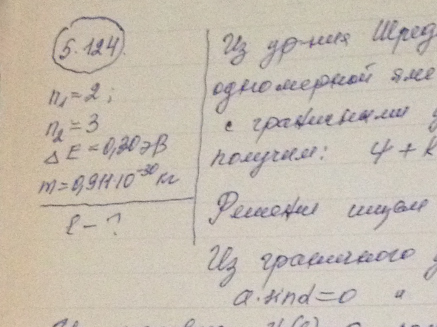 5.124
n₁=2;
n₂=3
ΔE=0,30 эВ
m=0,911·10⁻³⁰ кг
ℓ-?
Из ур-ния Шред
одномерной яме
с граничными у
получим: ψ + k
Решения ищем
Из граничного у
a·sinα=0 и